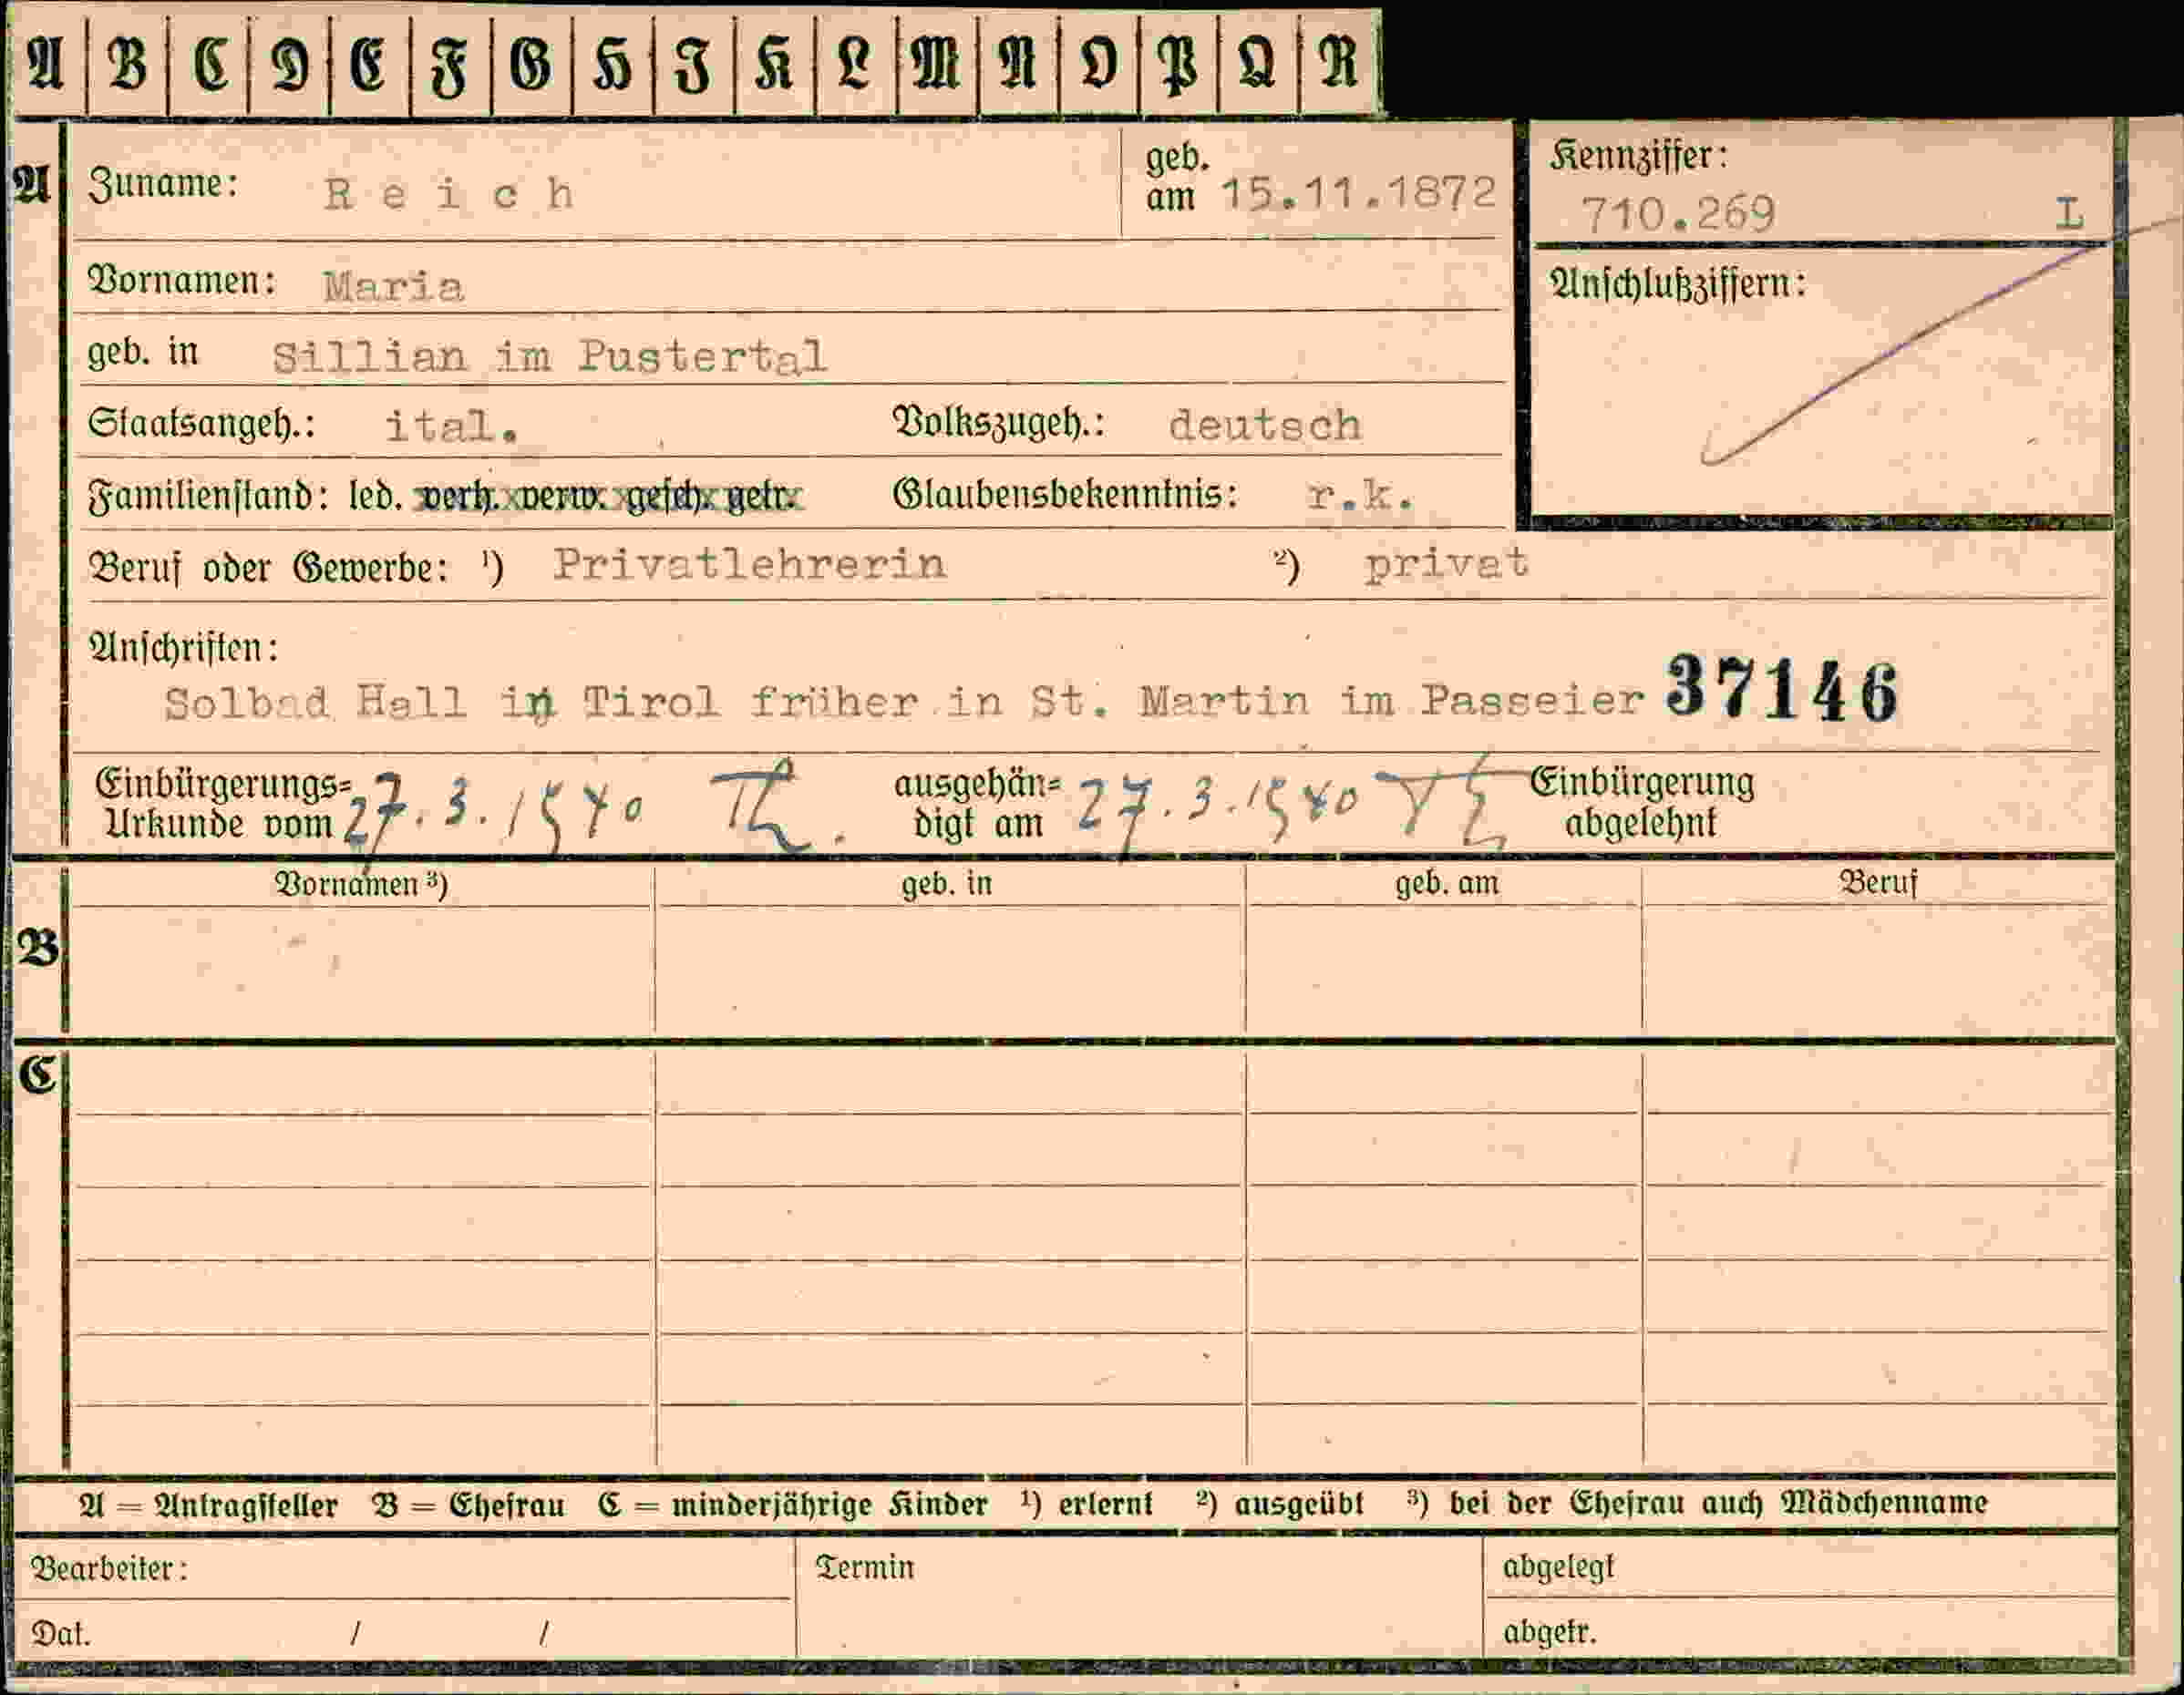 A B C D E F G H I K L M N O P Q R
A Zuname: Reich geb. am 15.11.1872
Kennziffer: 710.269 L
Vornamen: Maria
Anschlußziffern:
geb. in Sillian im Pustertal
Staatsangeh.: ital. Volkszugeh.: deutsch
Familienstand: led. verh. verw. gesch. getr. Glaubensbekenntnis: r.k.
Beruf oder Gewerbe: ¹) Privatlehrerin ²) privat
Anschriften:
Solbad Hall in Tirol früher in St. Martin im Passeier 37146
Einbürgerungs= Urkunde vom 27.3.1940 ausgehän= digt am 27.3.1940 Einbürgerung abgelehnt
Vornamen ³) geb. in geb. am Beruf
B
C
A = Antragsteller B = Ehefrau C = minderjährige Kinder ¹) erlernt ²) ausgeübt ³) bei der Ehefrau auch Mädchenname
Bearbeiter: Termin abgelegt
Dat. / / abgetr.